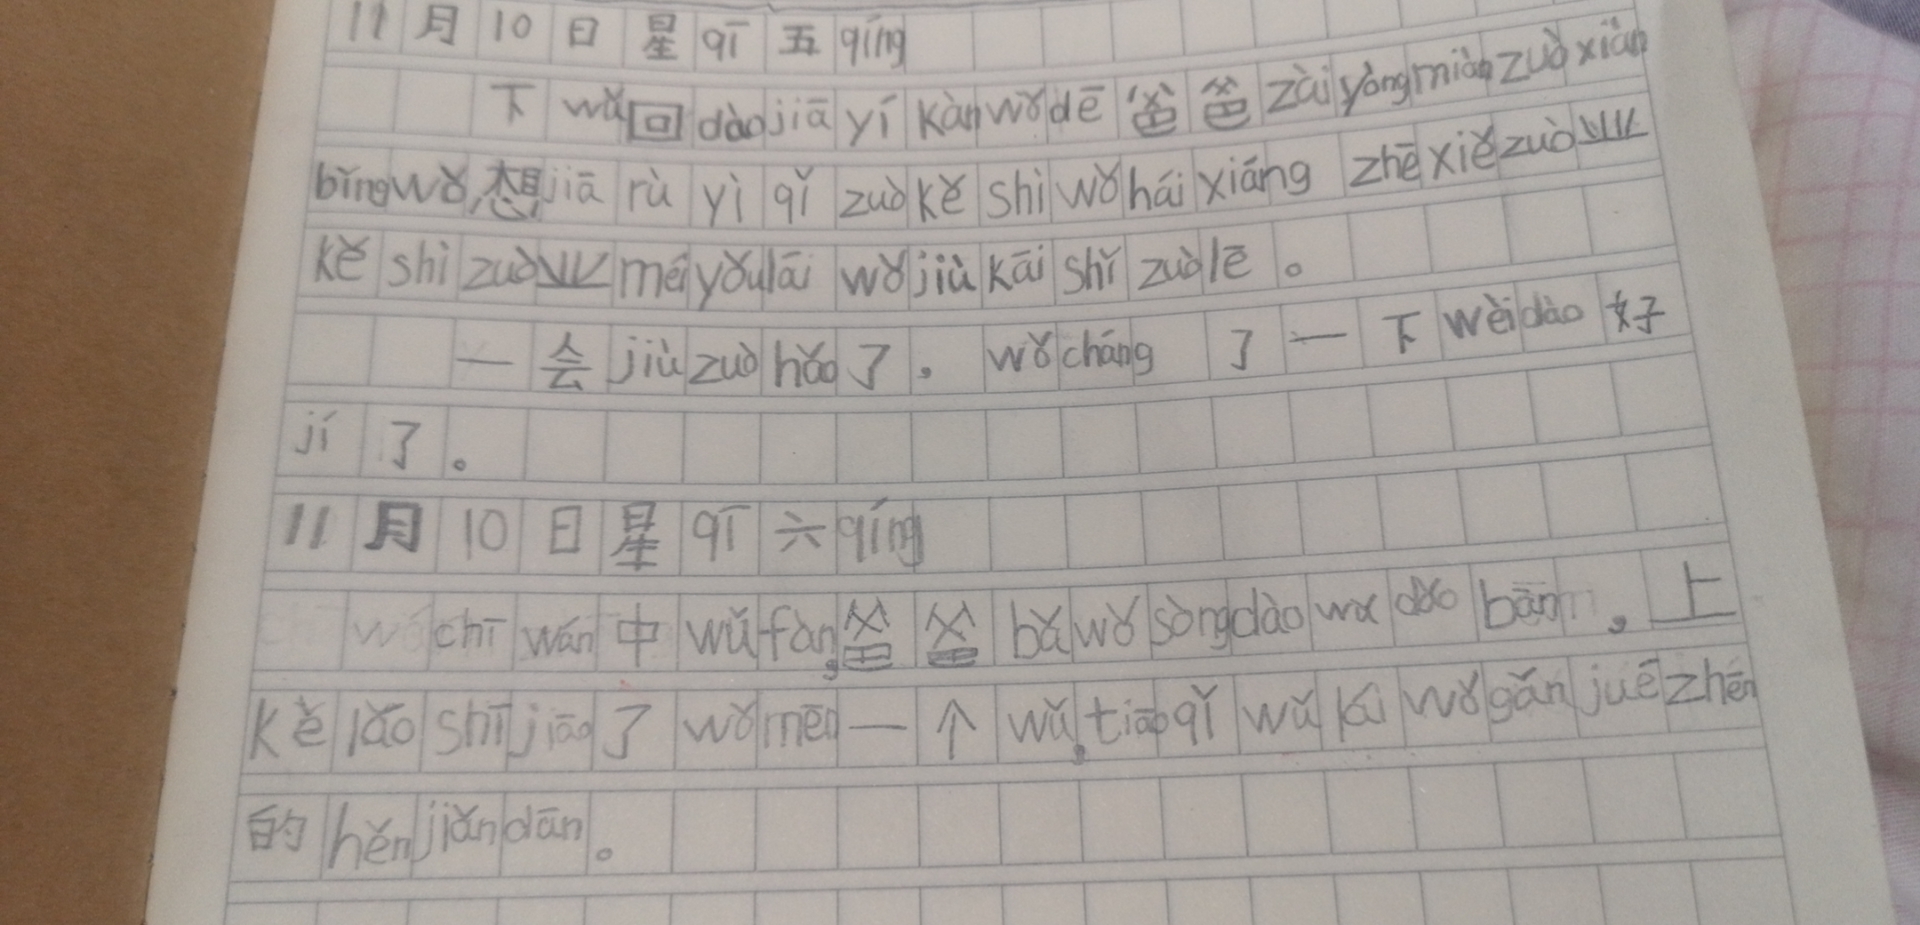 11月10日星qī五qíng
下wǔ回dàojiāyíkànwǒdē爸爸zàiyòngmiànzuòxiàn
bǐngwǒ,想jiārùyìqǐzuòkěshìwǒháixiángzhēxiězuò业
kěshìzuò业méiyǒuláiwǒjiùkāishǐzuòlē。
一会jiùzuòhǎo了,wǒcháng了一下wèidào好
jí了。
11月10日星qī六qíng
wǒchīwán中wǔfàn,爸爸bǎwǒsòngdàowǔdǎobān,上
kèlǎoshījiāo了wǒmēn一个wǔ,tiàoqǐwǔláiwǒgǎnjuézhēn
的hěnjiǎndān。